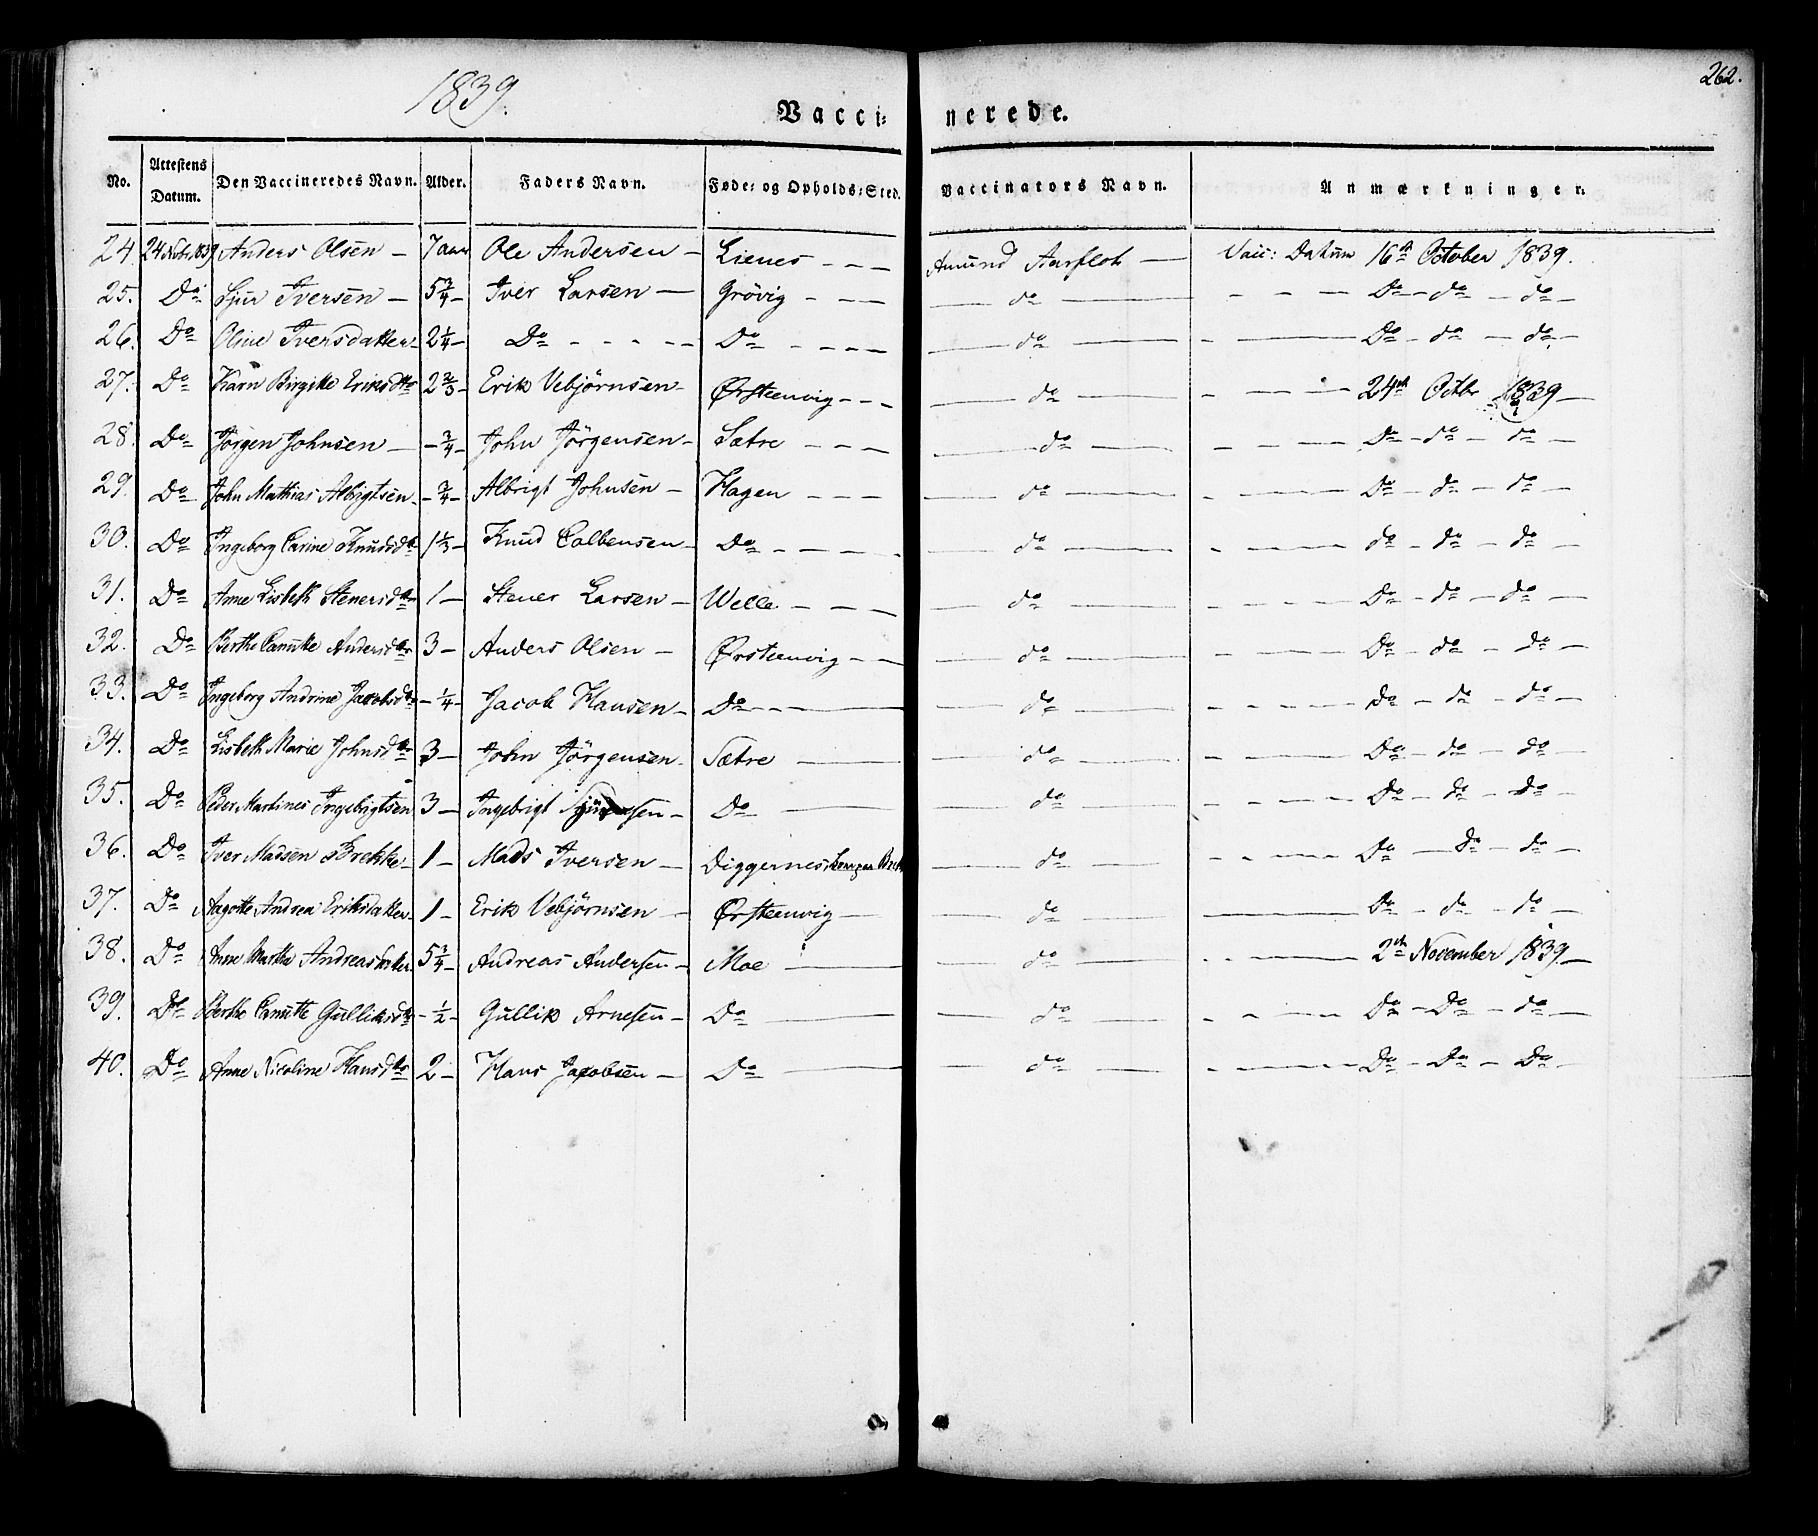 1839.
262.
Vacci- nerede.
No. | Attestens Datum. | Den Vaccineredes Navn. | Alder. | Faders Navn. | Føde- og Opholds-Sted. | Vaccinators Navn. | Anmærkninger.
24. 24 Nvbr 1839 Anders Olsen – 7 aar Ole Andersen – Lienes – – – Amund Aarflot — Vacc: Datum 16de October 1839.
25. Do Sjur Iversen – 5 3/4 – Iver Larsen — Grövig – – – — do — – – – Do – do – do –
26. Do Oline Iversdatter – 2 1/4 – Do – – – – – Do – – – – — do — – — Do – do – do.
27. Do Karn Birgitte Eriksdtr 2 2/3 – Erik Vebjörnsen – Ørsteenvig – – – — do — – — – – 24de Octbr 1839 –
28. Do Jörgen Johnsen – – 3/4 – John Jörgensen – Sætre – – – — do — – – – — Do – do – do –
29. Do John Mathias Albrigtsen – – 3/4 – Albrigt Johnsen – Hagen – – – — do — – — Do – do – do –
30. Do Ingeborg Carine Knudsdtr 1 1/3 – Knud Colbensen – Do – – – – — do — – — do – do – do –
31. Do Anne Lisbeth Stenersdtr 1 – Stener Larsen – Welle – – – — do — – — Do – do – do –
32. Do Berthe Canutte Andersdtr 3 – Anders Olsen – Ørsteenvig – – — do — – — Do – do – do –
33. Do Ingeborg Andrine Jacobsdtr – 1/4 – Jacob Hansen – Do – – – — do — – – – — do – do – do –
34. Do Lisbeth Marie Johnsdtr 3 – John Jörgensen – Sætre — — do — – – – — Do – do – do –
35. Do Peder Martinus Ingebrigtsen 3 – Ingebrigt – Do — — do — – – – — Do – do – do –
36. Do Iver Madsen Brekke – 1 – Mads Iversen – Diggernes — do — – – – — Do – do – do –
37. Do Aagothe Andrea Eriksdatter – 1 – Erik Vebjörnsen – Ørsteenvig — — do — — Do – do – do –
38. Do Anne Marthe Andreasdatter 5 3/4 – Andreas Andersen – Moe — — do — – – — 2den November 1839 –
39. Do Berthe Canutte Gulliksdtr – 1/2 – Gullik Arnesen – Do — — do — – – — Do – Do – do –
40. Do Anne Nicoline Hansdtr 2 – Hans Jacobsen – Do — — do — – – – — Do – Do – Do –